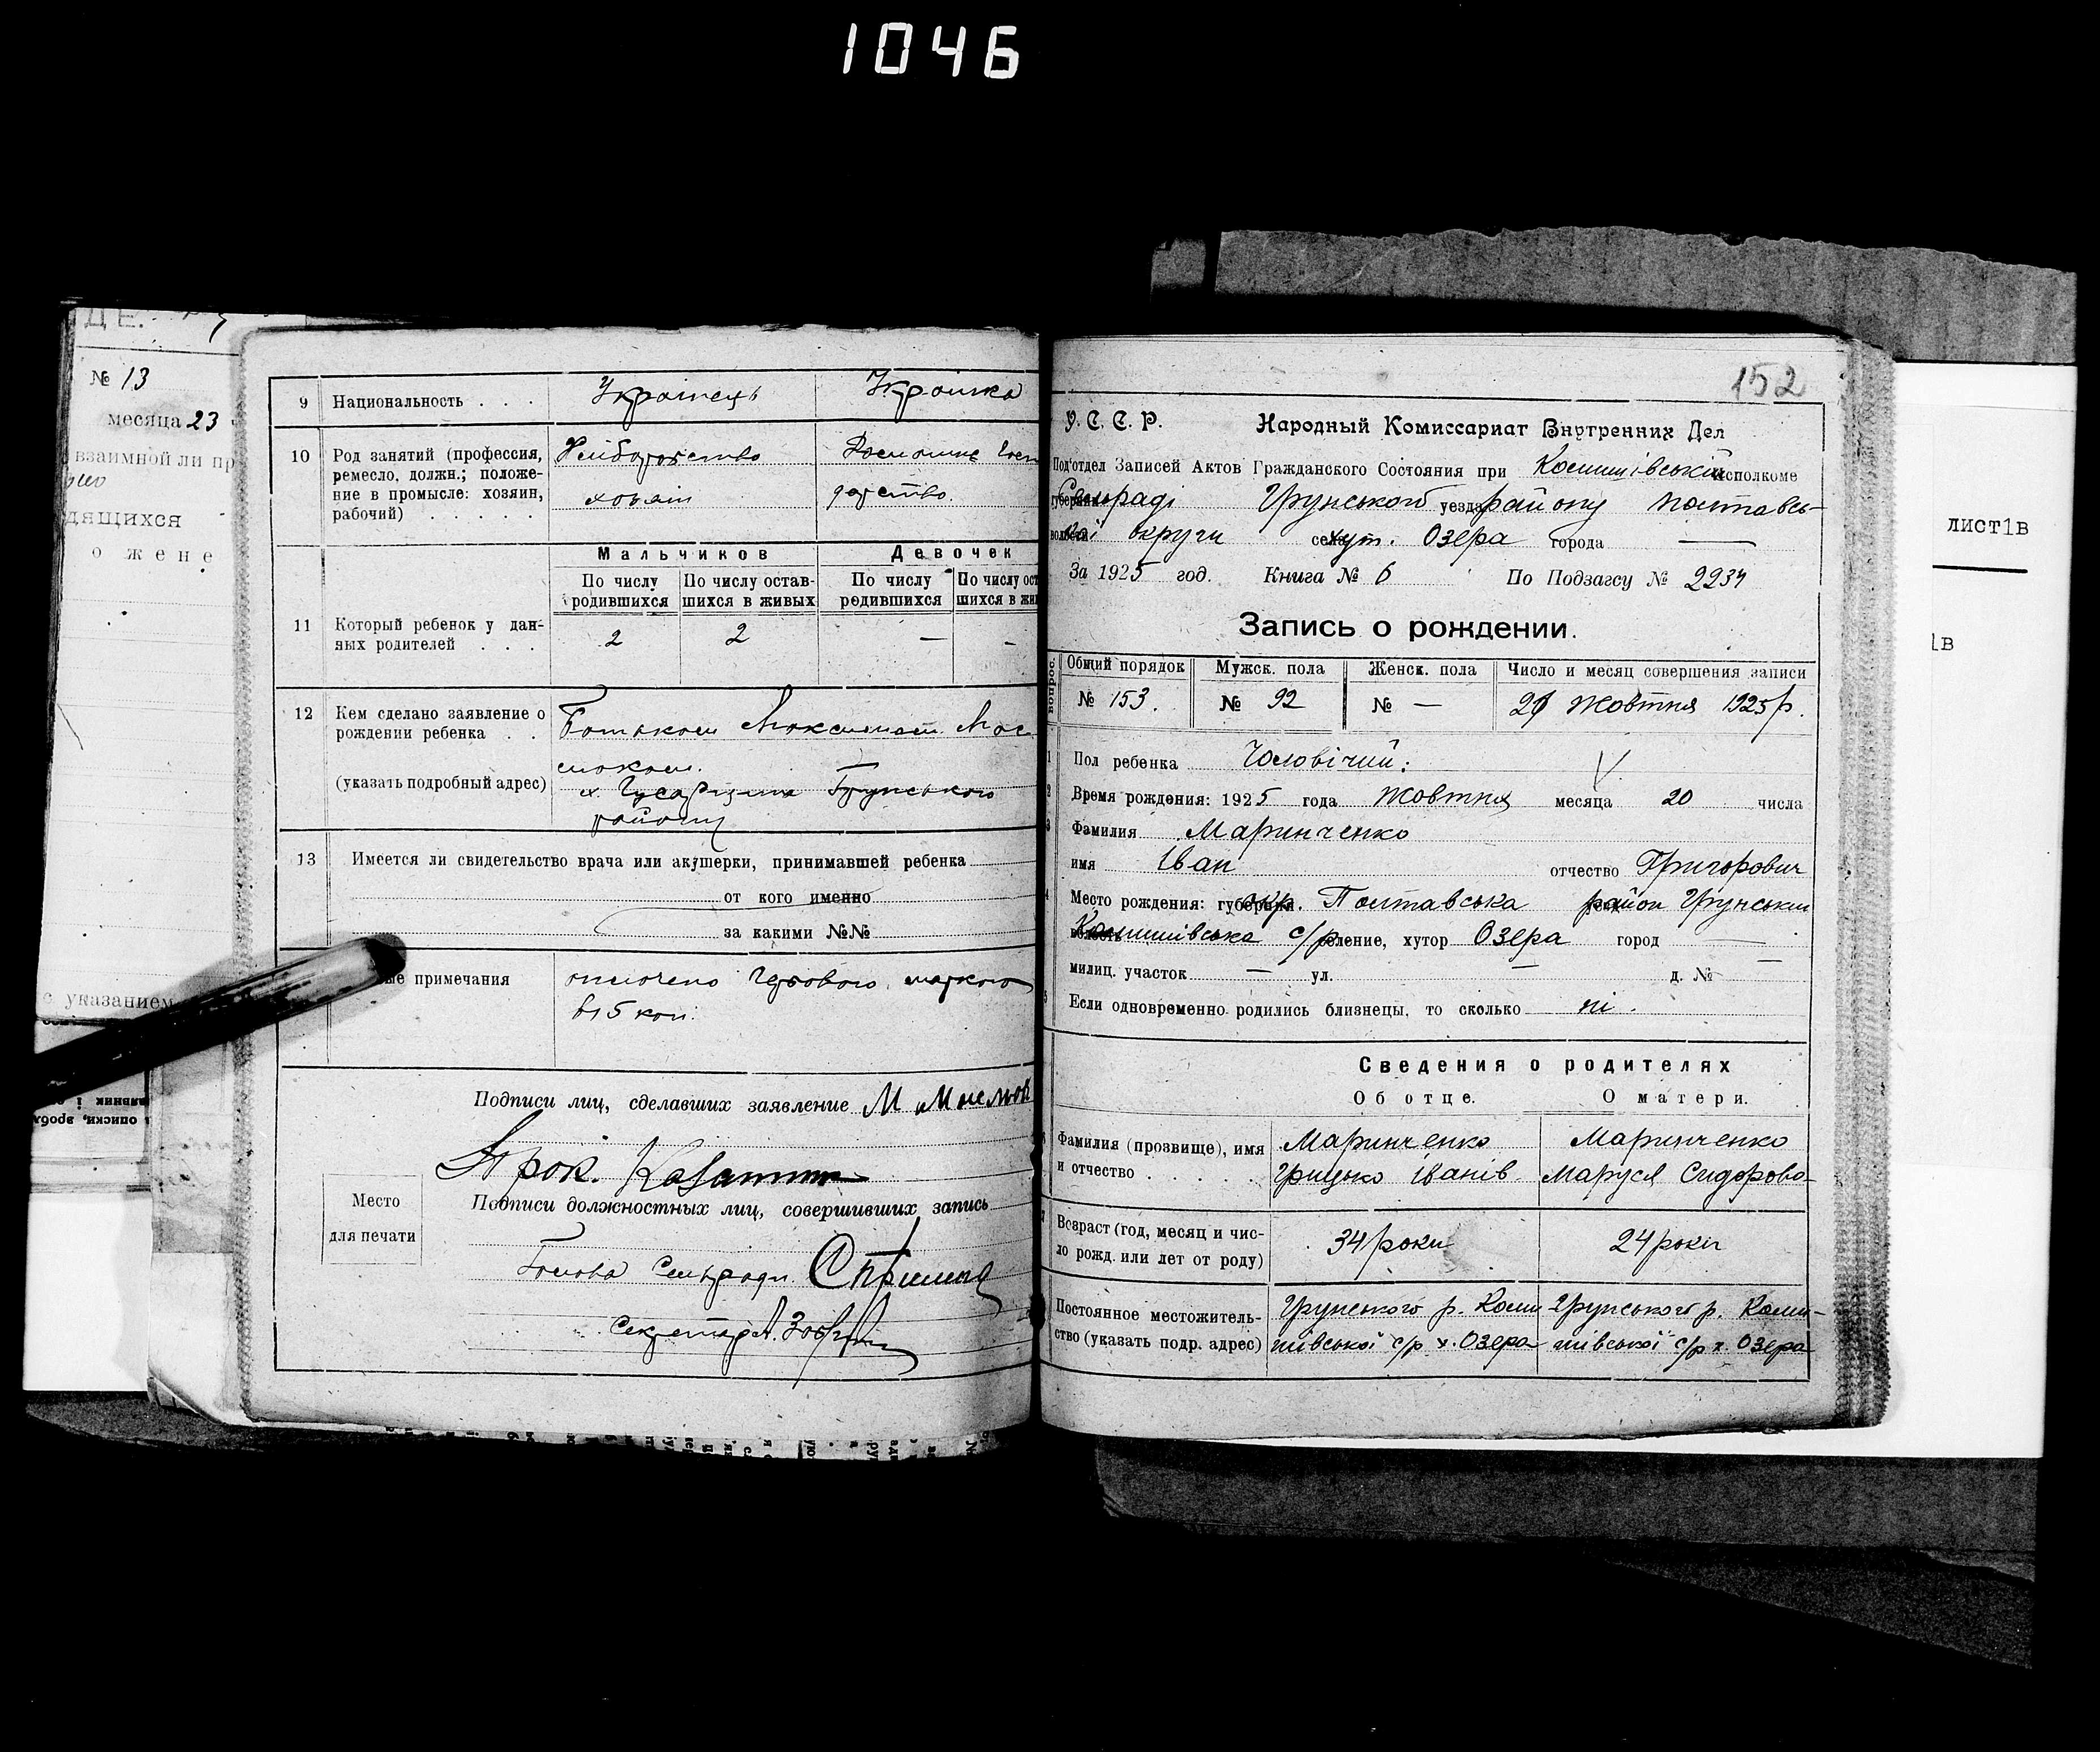 1046
№ 13
месяца 23
взаимной ли пр
дящихся
о жене
с указанием
9 Национальность . . . Українець Українка
10 Род занятий (профессия, ремесло, должн.; положе-
ние в промысле: хозяин,
рабочий) . . . . .
хозяін
Мальчиков Девочек
По числу родившихся По числу остав-
шихся в живых По числу родившихся По числу ост
шихся в жи
11 Который ребенок у дан-
ных родителей . . . 2 2 — -
12 Кем сделано заявление о
рождении ребенка . . Батьком
(указать подробный адрес)
х. Грунського
району
13 Имеется ли свидетельство врача или акушерки, принимавшей ребенка
от кого именно
за какими №№
примечания
оплочено маркою
в 15 коп.
Подписи лиц, сделавших заявление М
Прок.
Место
для печати
Подписи должностных лиц, совершивших запись
Голова Сельради
Секретар
152
У. С. С. Р. Народный Комиссариат Внутренних Дел
Под'отдел Записей Актов Гражданского Состояния при исполкоме
Сельраді Грунського уезда району Полтавсь-
кої округи хут. Озера города —
За 1925 год. Книга № 6 По Подзагсу № 2234
Запись о рождении.
вопрос.
Общий порядок Мужск. пола Женск. пола Число и месяц совершения записи
№ 153. № 92 № — Жовтня 1925 р.
1 Пол ребенка Чоловічий.
2 Время рождения: 1925 года Жовтня месяца 20 числа
3 Фамилия Маринченко
имя Іван отчество Григорович
4 Место рождения: окр. Полтавська район Грунський
с/р хутор Озера город —
милиц. участок — ул. — д. № —
5 Если одновременно родились близнецы, то сколько ні.
Сведения о родителях
Об отце. О матери.
6 Фамилия (прозвище), имя
и отчество . . . . . Маринченко Маринченко
Грицько Іванів. Маруся Сидорова-
7 Возраст (год, месяц и чис-
ло рожд. или лет от роду) 34 роки 24 роки
Постоянное местожитель-
ство (указать подр. адрес) Грунського р. Грунського р.
с/р х. Озера с/р х. Озера
лист1в
1в